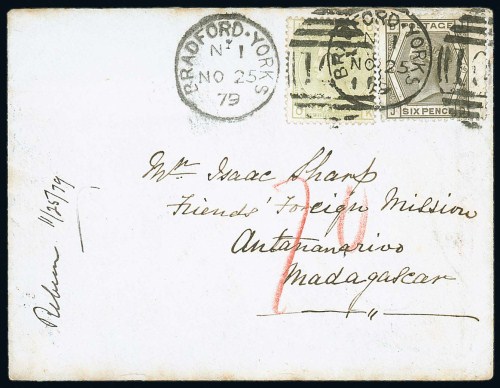 BRADFORD·YORKS
N 1
NO 25
79
BRADFORD·YORKS
N 1
NO 25
79
POSTAGE
SIX PENCE
J
K
Mr Isaac Sharp
Friends' Foreign Mission
Antananarivo
Madagascar
"
11/25/79